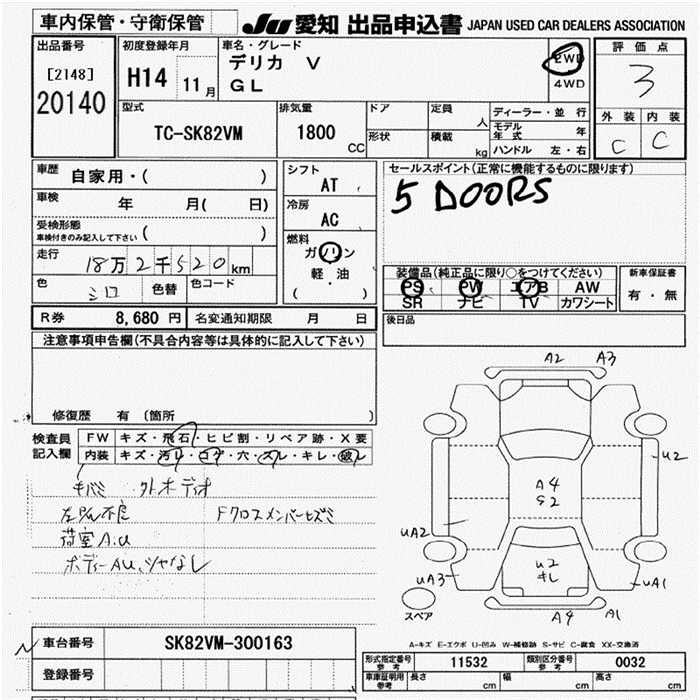 車内保管・守衛保管
JU 愛知 出品申込書 JAPAN USED CAR DEALERS ASSOCIATION
出品番号
[2148]
20140
初度登録年月
H14 11月
車名・グレード
デリカ V
GL
2WD
4WD
評価点
3
外装 内装
C C
型式
TC-SK82VM
排気量
1800 CC
ドア
形状
定員 人
積載 kg
ディーラー・並行
モデル年式 年
ハンドル 左・右
車歴 自家用・( )
車検 年 月( 日)
受検形態
車検付きのみ記入して下さい ( )
走行 18万2千520km
色 シロ 色替 色コード
シフト
AT
冷房
AC
燃料
ガソリン
軽・油
( )
セールスポイント(正常に機能するものに限ります)
5 DOORS
装備品(純正品に限り○をつけてください)
PS PW エアB AW
SR ナビ TV カワシート
新車保証書
有・無
R券 8,680円 名変通知期限 月 日
後日品
注意事項申告欄(不具合内容等は具体的に記入して下さい)
修復歴 有(箇所 )
検査員
記入欄
FW キズ・飛石・ヒビ割・リペア跡・X要
内装 キズ・汚レ・コゲ・穴・スレ・キレ・破レ
キバミ 外オーディオ
不良 Fクロスメンバーヒズミ
荷室A.U
ボディーAU、ツヤなし
A2 A3
U2
A4
S2
UA2
U2
キレ
UA3 UA1
スペア
A4 A1
A-キズ E-エクボ U-凹み W-補修跡 S-サビ C-腐食 XX-交換済
車台番号 SK82VM-300163
登録番号
形式指定番号
参考
11532
類別区分番号
参考
0032
車庫証明用
参考
長さ cm 幅 cm 高さ cm